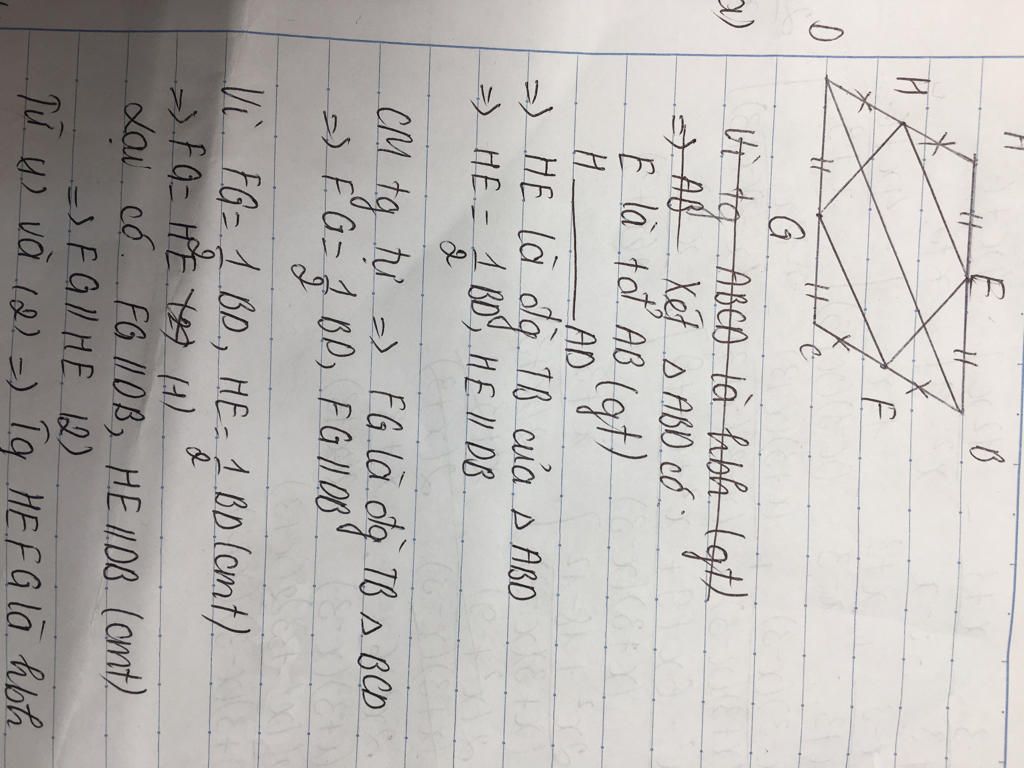 a)
A
E
B
H
F
D
G
C
Vì tg ABCD là hbh (gt)
=> AB Xét △ ABD có:
E là tđ AB (gt)
H ______ AD
=> HE là đg TB của △ ABD
=> HE = 1/2 BD, HE // DB
CM tg tự => FG là đg TB △ BCD
=> FG = 1/2 BD, FG // DB
Vì FG = 1/2 BD, HE = 1/2 BD (cmt)
=> FG = HE (2) (1)
Lại có FG // DB, HE // DB (cmt)
=> FG // HE (2)
Từ (1) và (2) => Tg HEFG là hbh